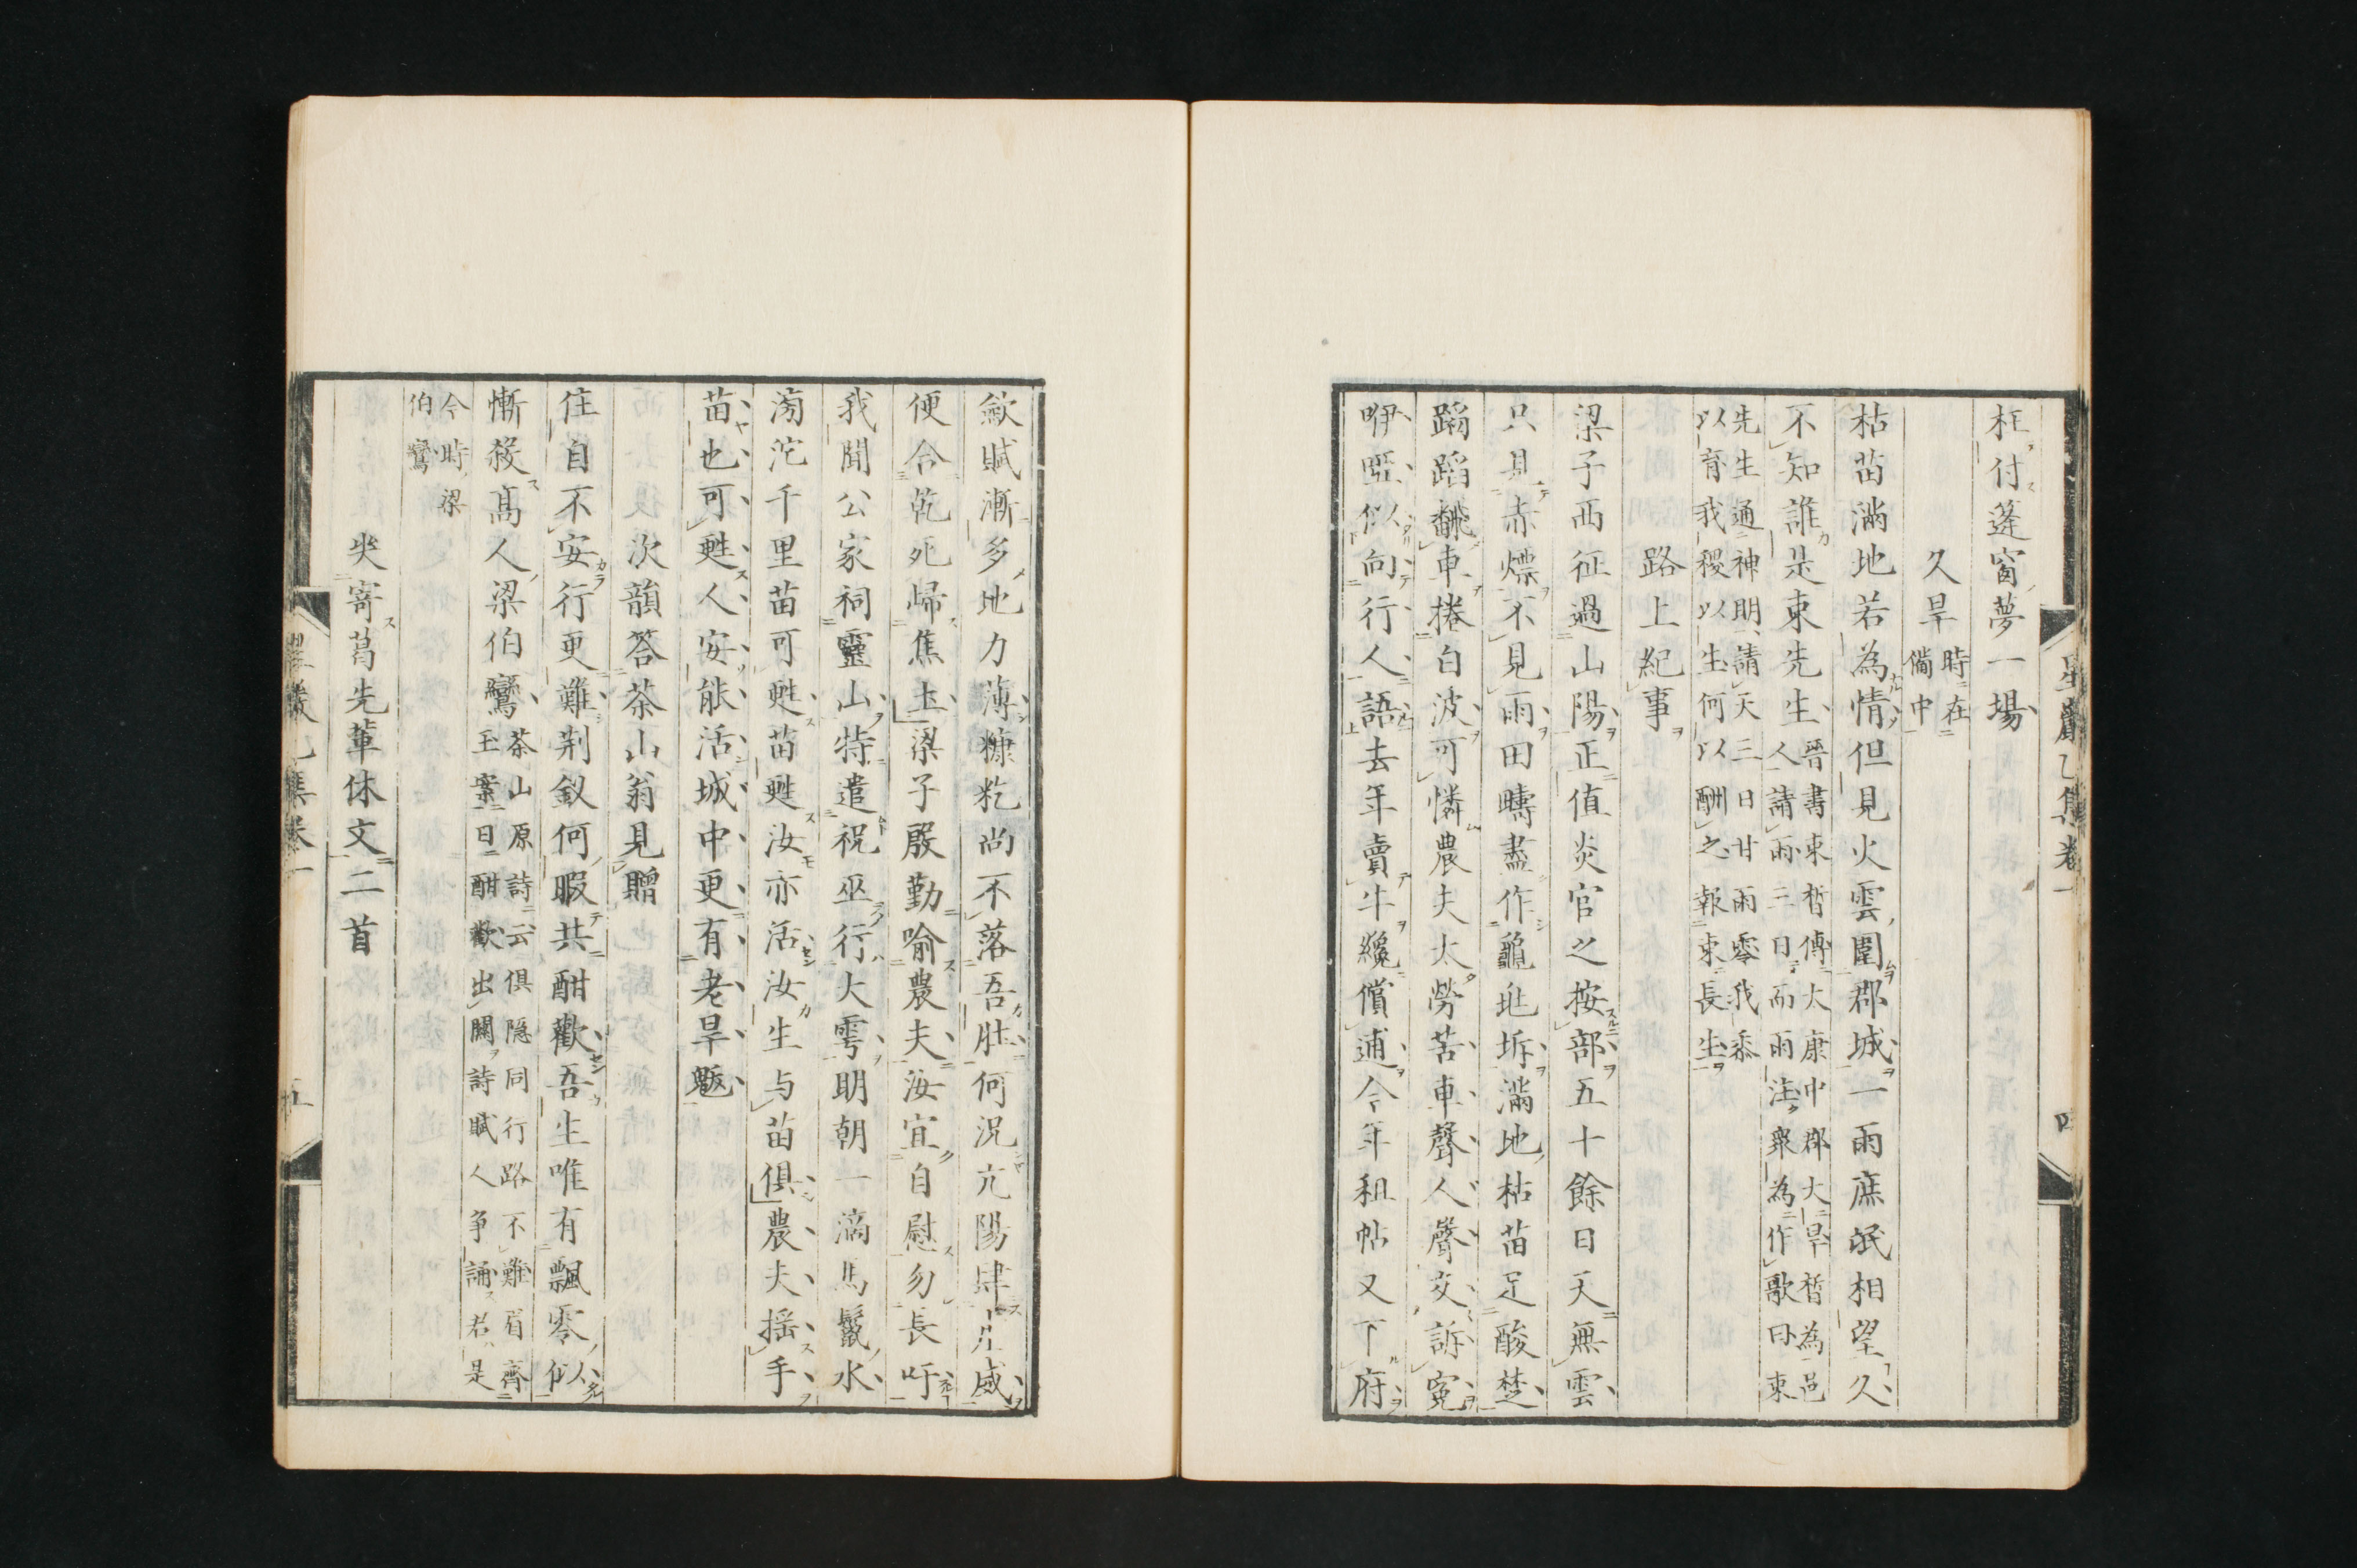 枉付篷窗夢一場
久旱 時在備中
枯苗滿地若為情但見火雲圍郡城一雨庶氓相望久
不知誰是束先生 晉書束晳傳大康中郡大旱晳為邑
人請雨三日而雨注衆為作歌曰束
先生通神明請天三日甘雨零我黍
以育我稷以生何以酬之報束長生
路上紀事
梁子西征過山陽正值炎官之按部五十餘日天無雲
只見赤熛不見雨田疇盡作龜兆坼滿地枯苗足酸楚
蹈蹈翻車捲白波可憐農夫太勞苦車聲人聲交訴寃
咿啞似向行人語去年賣牛纔償逋今年租帖又下府
歛賦漸多地力薄糠籺尚不落吾肚何況亢陽肆威
便合乾死歸焦土梁子殷勤喻農夫汝宜自慰勿長吁
我聞公家祠靈山特遣祝巫行大雩明朝一滴馬鬣水
滂沱千里苗可甦苗甦汝亦活汝生与苗俱農夫搖手
苗也可甦人安能活城中更有老旱魃
次韻答茶山翁見贈
住自不安行更難荆釵何暇共酣歡吾生唯有飄零似
慚殺高人梁伯鸞 茶山原詩云俱隱同行路不難眉齊
玉案日酣歡出關詩賦人爭誦君是
今時梁
伯鸞
寄葛先輩休文二首
星巖乙集卷一
四
星巖乙集卷一
五